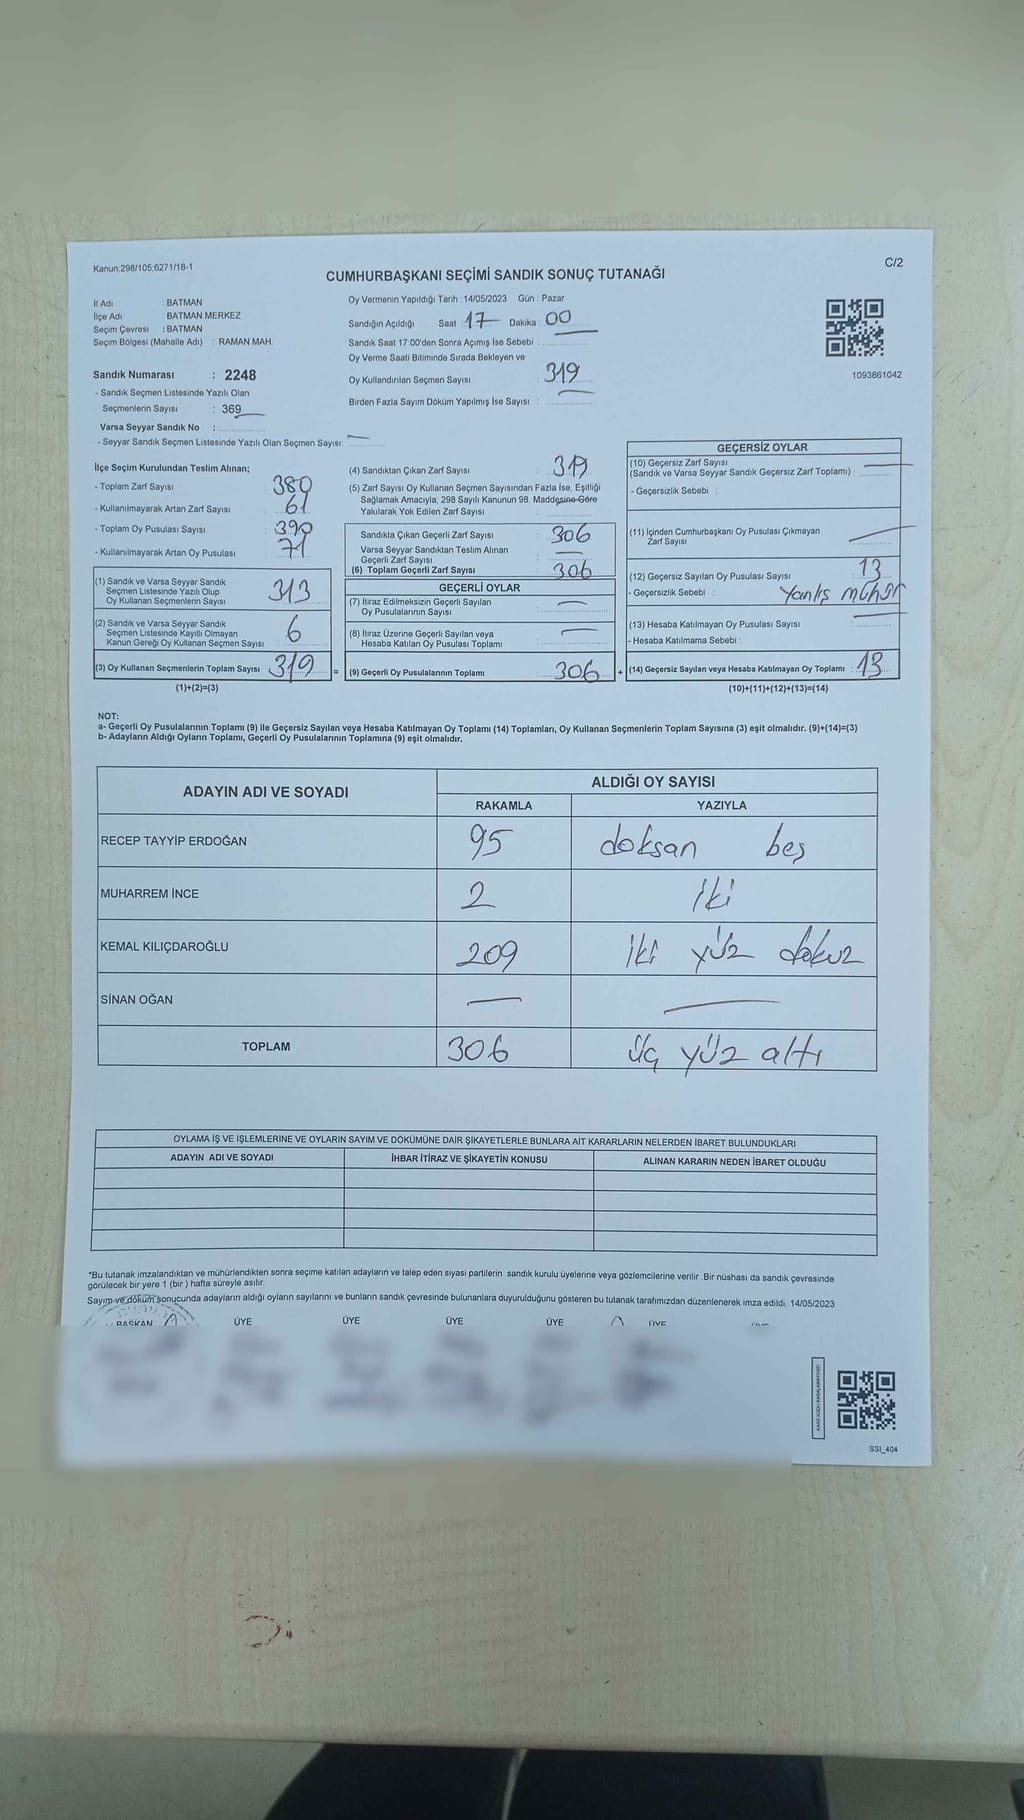 Kanun:298/105,6271/18-1
C/2
CUMHURBAŞKANI SEÇİMİ SANDIK SONUÇ TUTANAĞI
İl Adı : BATMAN
İlçe Adı : BATMAN MERKEZ
Seçim Çevresi : BATMAN
Seçim Bölgesi (Mahalle Adı) : RAMAN MAH.
Sandık Numarası : 2248
- Sandık Seçmen Listesinde Yazılı Olan
Seçmenlerin Sayısı : 369
Varsa Seyyar Sandık No :
- Seyyar Sandık Seçmen Listesinde Yazılı Olan Seçmen Sayısı:
Oy Vermenin Yapıldığı Tarih : 14/05/2023 Gün : Pazar
Sandığın Açıldığı Saat : 17 Dakika : 00
Sandık Saat 17:00'den Sonra Açımış İse Sebebi :
Oy Verme Saati Bitiminde Sırada Bekleyen ve
Oy Kullandırılan Seçmen Sayısı : 319
Birden Fazla Sayım Döküm Yapılmış İse Sayısı :
1093861042
İlçe Seçim Kurulundan Teslim Alınan;
- Toplam Zarf Sayısı : 380
- Kullanılmayarak Artan Zarf Sayısı : 61
- Toplam Oy Pusulası Sayısı : 390
- Kullanılmayarak Artan Oy Pusulası : 71
(1) Sandık ve Varsa Seyyar Sandık
Seçmen Listesinde Yazılı Olup
Oy Kullanan Seçmenlerin Sayısı : 313
(2) Sandık ve Varsa Seyyar Sandık
Seçmen Listesinde Kayıtlı Olmayan
Kanun Gereği Oy Kullanan Seçmen Sayısı : 6
(3) Oy Kullanan Seçmenlerin Toplam Sayısı : 319
(1)+(2)=(3)
(4) Sandıktan Çıkan Zarf Sayısı : 319
(5) Zarf Sayısı Oy Kullanan Seçmen Sayısından Fazla İse, Eşitliği
Sağlamak Amacıyla, 298 Sayılı Kanunun 98. Maddesine Göre
Yakılarak Yok Edilen Zarf Sayısı :
Sandıkta Çıkan Geçerli Zarf Sayısı : 306
Varsa Seyyar Sandıktan Teslim Alınan
Geçerli Zarf Sayısı :
(6) Toplam Geçerli Zarf Sayısı : 306
GEÇERLİ OYLAR
(7) İtiraz Edilmeksizin Geçerli Sayılan
Oy Pusulalarının Sayısı :
(8) İtiraz Üzerine Geçerli Sayılan veya
Hesaba Katılan Oy Pusulası Toplamı :
= (9) Geçerli Oy Pusulalarının Toplamı : 306 +
GEÇERSİZ OYLAR
(10) Geçersiz Zarf Sayısı
(Sandık ve Varsa Seyyar Sandık Geçersiz Zarf Toplamı) :
- Geçersizlik Sebebi :
(11) İçinden Cumhurbaşkanı Oy Pusulası Çıkmayan
Zarf Sayısı :
(12) Geçersiz Sayılan Oy Pusulası Sayısı : 13
- Geçersizlik Sebebi : Yanlış mühür
(13) Hesaba Katılmayan Oy Pusulası Sayısı :
- Hesaba Katılmama Sebebi :
(14) Geçersiz Sayılan veya Hesaba Katılmayan Oy Toplamı : 13
(10)+(11)+(12)+(13)=(14)
NOT:
a- Geçerli Oy Pusulalarının Toplamı (9) ile Geçersiz Sayılan veya Hesaba Katılmayan Oy Toplamı (14) Toplamları, Oy Kullanan Seçmenlerin Toplam Sayısına (3) eşit olmalıdır. (9)+(14)=(3)
b- Adayların Aldığı Oyların Toplamı, Geçerli Oy Pusulalarının Toplamına (9) eşit olmalıdır.
ADAYIN ADI VE SOYADI ALDIĞI OY SAYISI
RAKAMLA YAZIYLA
RECEP TAYYİP ERDOĞAN 95 doksan beş
MUHARREM İNCE 2 iki
KEMAL KILIÇDAROĞLU 209 iki yüz dokuz
SİNAN OĞAN
TOPLAM 306 üç yüz altı
OYLAMA İŞ VE İŞLEMLERİNE VE OYLARIN SAYIM VE DÖKÜMÜNE DAİR ŞİKAYETLERLE BUNLARA AİT KARARLARIN NELERDEN İBARET BULUNDUKLARI
ADAYIN ADI VE SOYADI İHBAR İTİRAZ VE ŞİKAYETİN KONUSU ALINAN KARARIN NEDEN İBARET OLDUĞU
*Bu tutanak imzalandıktan ve mühürlendikten sonra seçime katılan adayların ve talep eden siyasi partilerin sandık kurulu üyelerine veya gözlemcilerine verilir .Bir nüshası da sandık çevresinde
görülecek bir yere 1 (bir ) hafta süreyle asılır.
Sayım ve döküm sonucunda adayların aldığı oyların sayılarını ve bunların sandık çevresinde bulunanlara duyurulduğunu gösteren bu tutanak tarafımızdan düzenlenerek imza edildi. 14/05/2023
BAŞKAN ÜYE ÜYE ÜYE ÜYE ÜYE
SSI_404